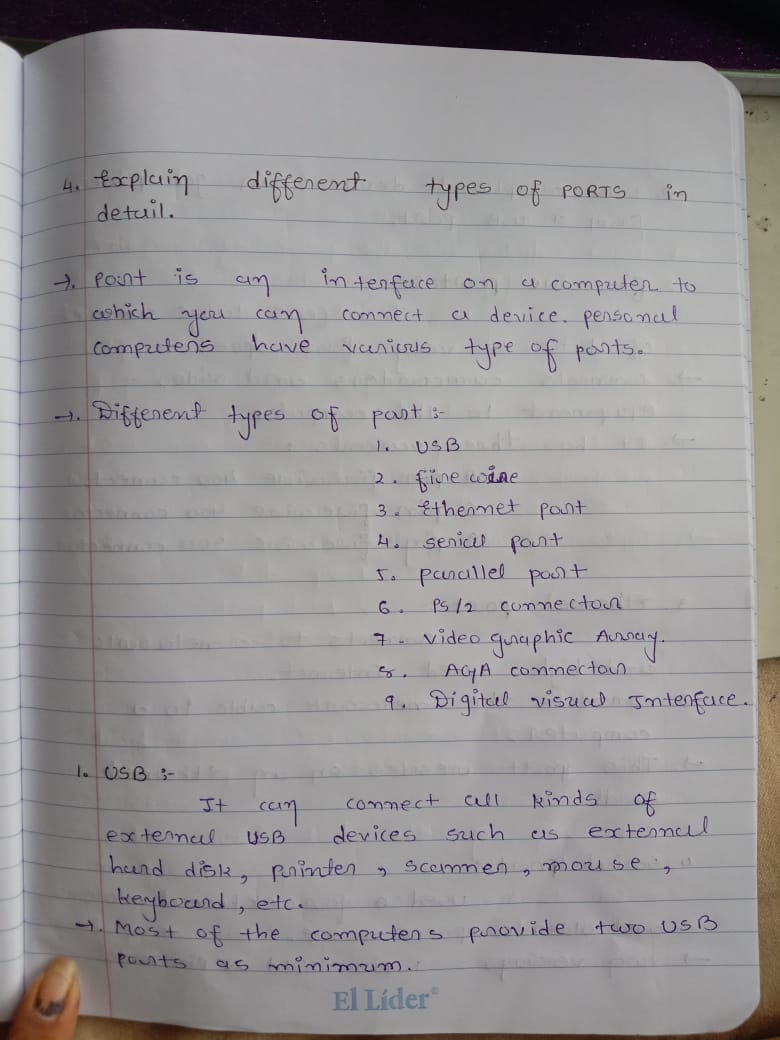 4. Explain different types of PORTS in
detail.
→. Port is an interface on a computer to
which you can connect a device. personal
computers have various type of ports.
→. Different types of port :-
1. USB
2. fire wire
3. Ethernet port
4. serial port
5. parallel port
6. PS/2 connector
7. Video graphic Array.
8. AGA connector
9. Digital visual Interface.
1. USB :-
It can connect all kinds of
external USB devices such as external
hard disk, printer, scanner, mouse,
keyboard, etc.
→. Most of the computers provide two USB
ports as minimum.
El Líder